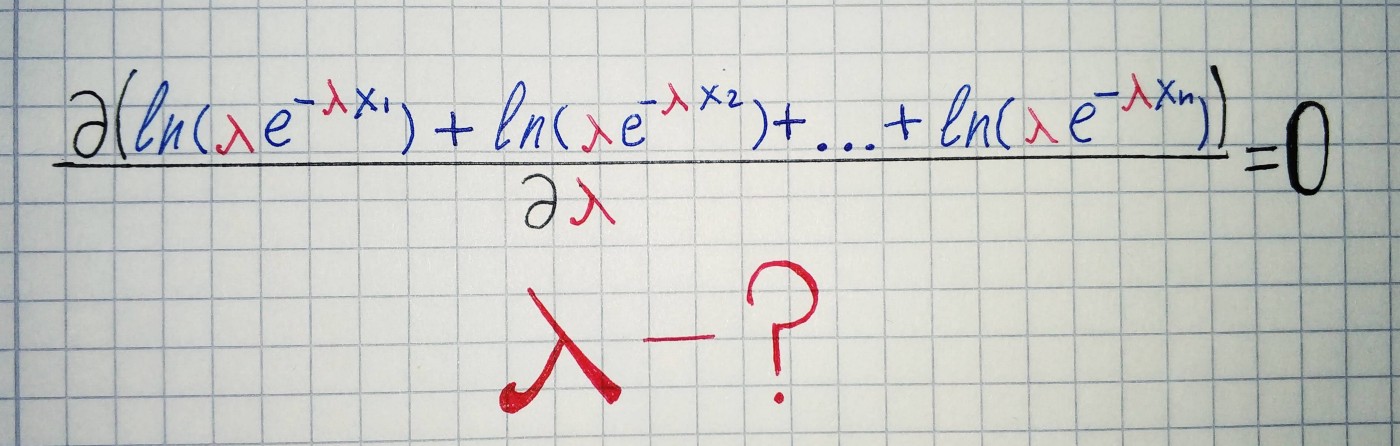 ∂(ln(λe^{-λx₁}) + ln(λe^{-λx₂}) + ... + ln(λe^{-λxₙ}))
∂λ
=0
λ – ?